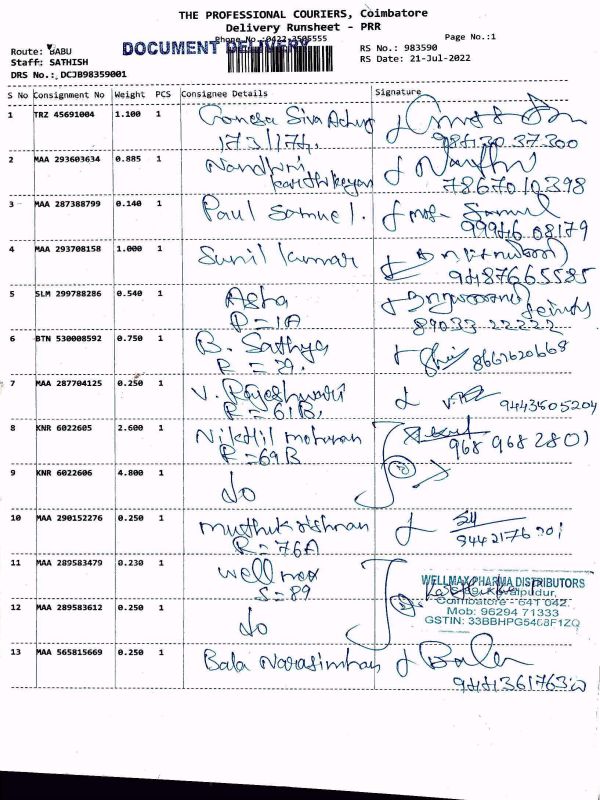 THE PROFESSIONAL COURIERS, Coimbatore
Delivery Runsheet - PRR
Phone No.:0422-3505555 Page No.:1
Route: BABU DOCUMENT DELIVERY RS No.: 983590
Staff: SATHISH RS Date: 21-Jul-2022
DRS No.: DCJB98359001
S No Consignment No Weight PCS Consignee Details Signature
1 TRZ 45691004 1.100 1 Siva
173/174. 98430 37300
2 MAA 293603634 0.885 1 Nandhini
karthikeyan 7867010398
3 MAA 287388799 0.140 1 Paul Samuel. Samuel
99946 08179
4 MAA 293708158 1.000 1 Sunil kumar
9487665585
5 SLM 299788286 0.540 1 Asha
R=1A 89033 22222
6 BTN 530008592 0.750 1 B. Sathya
8667620668
7 MAA 287704125 0.250 1 V. Rajeshwari
R=61B. 9443505204
8 KNR 6022605 2.600 1 Nikhil
R=69B 968 968 2801
9 KNR 6022606 4.800 1 do
10 MAA 290152276 0.250 1 muthukrishnan
R=76A
11 MAA 289583479 0.230 1 wellmax
S=89
WELLMAX PHARMA DISTRIBUTORS
12 MAA 289583612 0.250 1 do
Coimbatore - 641 042.
Mob: 96294 71333
GSTIN: 33BBHPG5408F1ZQ
13 MAA 565815669 0.250 1 Bala Narasimhan Bala